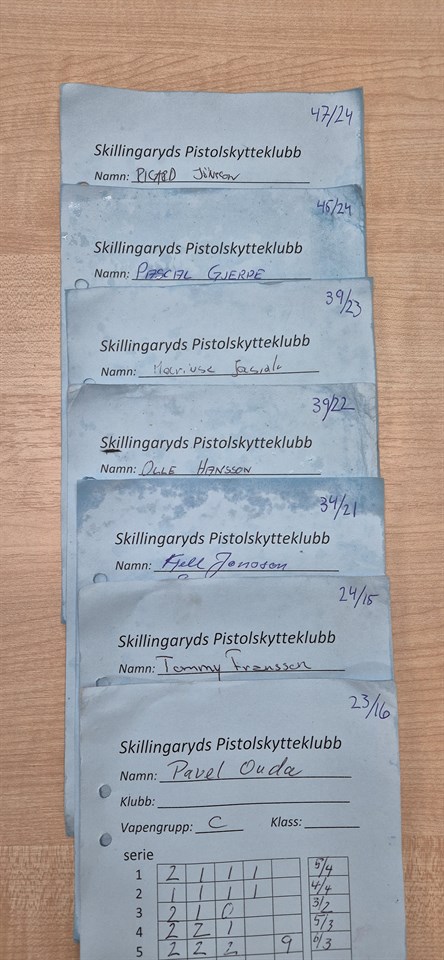 47/24
Skillingaryds Pistolskytteklubb
Namn: 
45/24
Skillingaryds Pistolskytteklubb
Namn: PASCAL GJERPE
39/23
Skillingaryds Pistolskytteklubb
Namn: 
39/22
Skillingaryds Pistolskytteklubb
Namn: OLLE HANSSON
34/21
Skillingaryds Pistolskytteklubb
Namn: Kjell Jonsson
24/15
Skillingaryds Pistolskytteklubb
Namn: Tommy Franssen
23/16
Skillingaryds Pistolskytteklubb
Namn: Pavel Ouda
Klubb:
Vapengrupp: C Klass:
serie
1 2 1 1 1 5/4
2 1 1 1 1 4/4
3 2 1 0 3/2
4 2 2 1 5/3
5 2 2 2 9 6/3